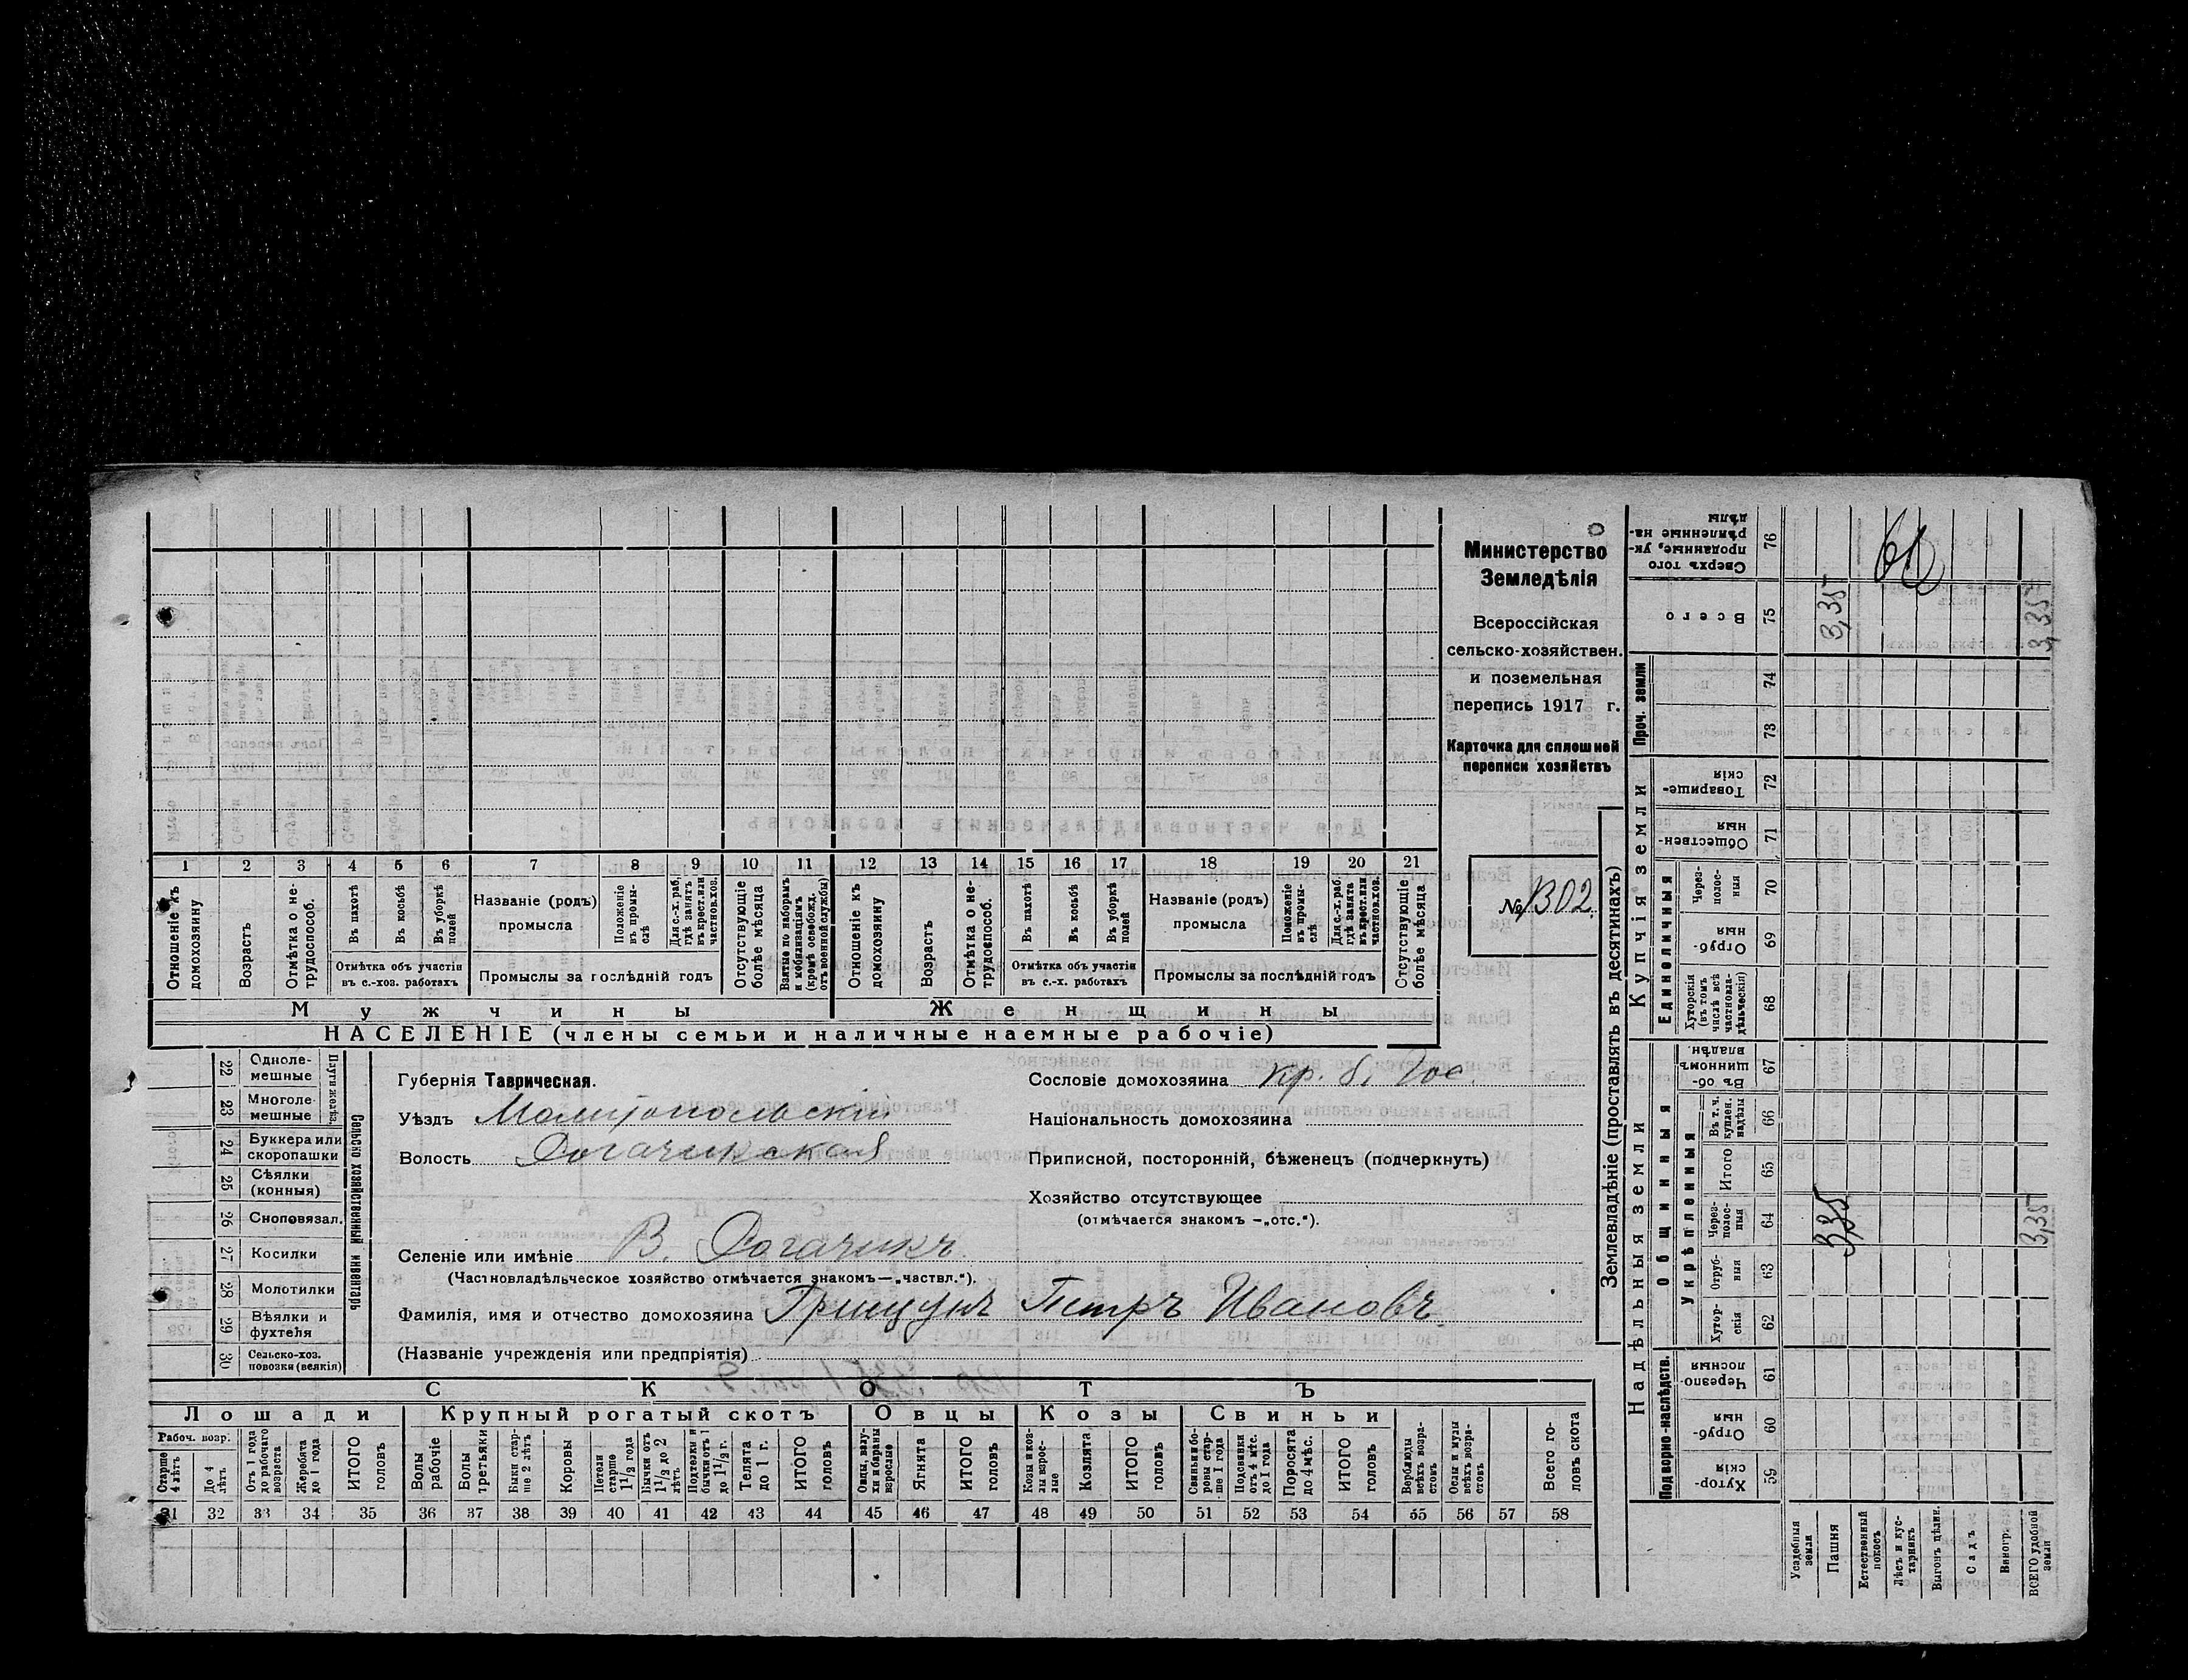 Министерство
Земледѣлія
Всероссійская
сельско-хозяйствен.
и поземельная
перепись 1917 г.
Карточка для сплошной
переписи хозяйствъ
№ 1302
1 2 3 4 5 6 7 8 9 10 11 12 13 14 15 16 17 18 19 20 21
Отношеніе къ домохозяину
Возрастъ
Отмѣтка о не-трудоспособ.
Въ пахотѣ
Въ косьбѣ
Въ уборкѣ полей
Отмѣтка объ участіи
въ с.-хоз. работахъ
Названіе (родъ)
промысла
Положеніе въ промы-слѣ
Для с.-х. раб. гдѣ занятъ въ крест. или частнов. хоз.
Промыслы за послѣдній годъ
Отсутствующіе болѣе мѣсяца
Взятые по наборамъ и мобилизаціямъ (кромѣ освобожд. отъ военной службы)
Отношеніе къ домохозяину
Возрастъ
Отмѣтка о не-трудоспособ.
Въ пахотѣ
Въ косьбѣ
Въ уборкѣ полей
Отмѣтка объ участіи
въ с.-х. работахъ
Названіе (родъ)
промысла
Положеніе въ промы-слѣ
Для с.-х. раб. гдѣ занята въ крест. или частнов. хоз.
Промыслы за послѣдній годъ
Отсутствующіе болѣе мѣсяца
Мужчины Женщины
НАСЕЛЕНІЕ (члены семьи и наличные наемные рабочіе)
Сельско хозяйственный инвентарь
Плуги желѣз.
22 Одноле-мешные
23 Многоле-мешные
24 Буккера или скоропашки
25 Сѣялки (конныя)
26 Сноповязал.
27 Косилки
28 Молотилки
29 Вѣялки и фухтеля
30 Сельско-хоз. повозки (всякія)
Губернія Таврическая.
Уѣздъ Мелитопольскій
Волость Рогачикская
Селеніе или имѣніе В. Рогачикъ
(Частновладѣльческое хозяйство отмѣчается знакомъ—„частвл.“).
Фамилія, имя и отчество домохозяина Грищунъ Петръ Ивановъ.
(Названіе учрежденія или предпріятія)
Сословіе домохозяина кр. б. Гос.
Національность домохозяина
Приписной, посторонній, бѣженецъ (подчеркнуть)
Хозяйство отсутствующее
(отмѣчается знакомъ —„отс.“).
СКОТЪ
Лошади Крупный рогатый скотъ Овцы Козы Свиньи
Рабоч. возр.
Старше 4 лѣтъ
До 4 лѣтъ
Отъ 1 года до рабочаго возраста
Жеребята до 1 года
ИТОГО головъ
Волы рабочіе
Волы третьяки
Быки стар-ше 2 лѣтъ
Коровы
Нетели старше 1 1/2 года
Бычки отъ 1 1/2 до 2 лѣтъ
Подтелки и бычки отъ 1 до 1 1/2 г.
Телята до 1 г.
ИТОГО головъ
Овцы, валу-хи и бараны взрослые
Ягнята
ИТОГО головъ
Козы и коз-лы взрос-лые
Козлята
ИТОГО головъ
Свиньи и бо-ровы стар-ше 1 года
Подсвинки отъ 4 мѣс. до 1 года
Поросята до 4 мѣс.
ИТОГО головъ
Верблюды всѣхъ возра-стовъ
Ослы и мулы всѣхъ возра-стовъ
Всего го-ловъ скота
31 32 33 34 35 36 37 38 39 40 41 42 43 44 45 46 47 48 49 50 51 52 53 54 55 56 57 58
Землевладѣніе (проставлять въ десятинахъ)
Надѣльныя земли
Купчія земли
Проч. земли
Сверхъ того проданные, ук-рѣпленные на-дѣлы 76
Всего 75 3,35 3,35
74
73
Товарище-скія 72
Обществен-ныя 71
Единоличныя
Через-полос-ныя 70
Отруб-ныя 69
Хуторскія (въ томъ числѣ всѣ частновла-дѣльческія) 68
Общинныя
Въ об-щинномъ владѣн. 67
Укрѣпленныя
Въ т. ч. куплен. надѣлы 66
Итого 65
Через-полос-ныя 64 3,35 3,35
Отруб-ныя 63
Хутор-скія 62
Подворно-наслѣдств.
Черезпо-лосныя 61
Отруб-ныя 60
Хутор-скія 59
Усадебныя земли
Пашня
Естественный покосъ
Лѣсъ и кус-тарникъ
Выгонъ цѣлин.
Садъ
Виногр.
ВСЕГО удобной земли